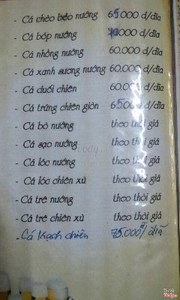 - Cá chẽo bẽo nướng 65.000 đ/dĩa
- Cá bóp nướng 70.000 đ/dĩa
- Cá nhồng nướng 60.000 đ/dĩa
- Cá xanh xương nướng 60.000 đ/dĩa
- Cá đuối chiên 60.000 đ/dĩa
- Cá trứng chiên giòn 65.000 đ/dĩa
- Cá bò nướng theo thời giá
- Cá sạo nướng theo thời giá
- Cá lóc nướng theo thời giá
- Cá lóc chiên xù theo thời giá
- Cá trê nướng theo thời giá
- Cá trê chiên xù theo thời giá
- Cá Kạch chiên 75.000/ dĩa